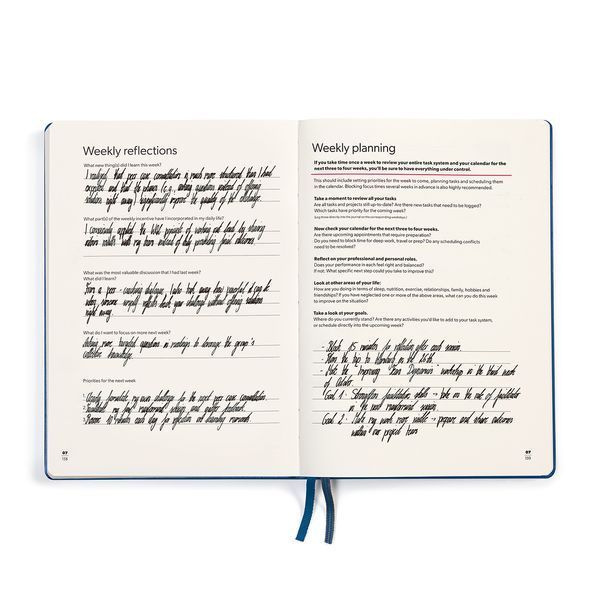 Weekly reflections
What new thing(s) did I learn this week?
I realized that peer case consultation is much more structured than I had
expected and that the phases (e.g. asking questions instead of offering
solutions right away) significantly improve the quality of the dialogue.
What part(s) of the weekly incentive have I incorporated in my daily life?
I consciously applied the principle of working out loud by sharing
interim results with my team instead of only presenting final outcomes.
What was the most valuable discussion that I had last week?
What did I learn?
From a peer coaching dialogue, I also took away how powerful it can be
when someone simply reflects back your challenge without offering solutions
right away.
What do I want to focus on more next week?
Asking more targeted questions in meetings to leverage the group's
collective knowledge.
Priorities for the next week
- Clearly formulate my own challenge for the next peer case consultation.
- Facilitate my first session and gather feedback.
- Reserve 10 minutes each day for reflection and learning
07
118
Weekly planning
If you take time once a week to review your entire task system and your calendar for the
next three to four weeks, you'll be sure to have everything under control.
This should include setting priorities for the week to come, planning tasks and scheduling them
in the calendar. Blocking focus times several weeks in advance is also highly recommended.
Take a moment to review all your tasks
Are all tasks and projects still up-to-date? Are there new tasks that need to be logged?
Which tasks have priority for the coming week?
(Log those directly into the journal on the corresponding workdays.)
Now check your calendar for the next three to four weeks.
Are there upcoming appointments that require preparation?
Do you need to block time for deep work, travel or prep? Do any scheduling conflicts
need to be resolved?
Reflect on your professional and personal roles.
Does your performance in each feel right and balanced?
If not: What specific next step could you take to improve this?
Look at other areas of your life:
How are you doing in terms of sleep, nutrition, exercise, relationships, family, hobbies and
friendships? If you have neglected one or more of the above areas, what can you do this week
to improve on the situation?
Take a look at your goals.
Where do you currently stand? Are there any activities you'd like to add to your task system,
or schedule directly into the upcoming week?
- Block 15 minutes for reflection after each session.
- Plan the trip to on the
- Note the "Improving Team Dynamics" workshop in the third week
of October.
- Goal 1: Strengthen facilitation skills → take on the role of facilitator
in the next session.
- Goal 2: Make my work more visible → prepare and share outcomes
within our project team.
07
119